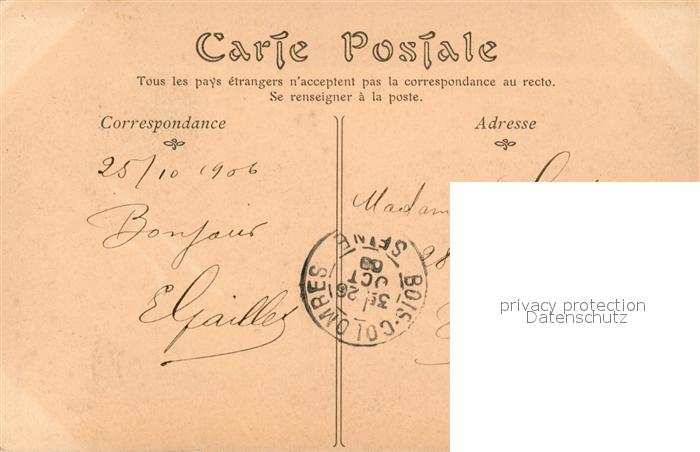 Carte Postale
Tous les pays étrangers n'acceptent pas la correspondance au recto.
Se renseigner à la poste.
Correspondance
Adresse
25/10 1906
Bonjour
Madam
28
BOIS-COLOMBES
SEINE
26
OCT
privacy protection
Datenschutz